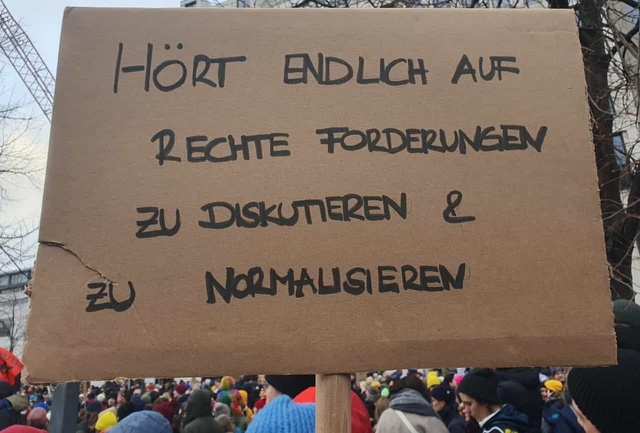 HÖRT ENDLICH AUF
RECHTE FORDERUNGEN
ZU DISKUTIEREN &
ZU NORMALISIEREN